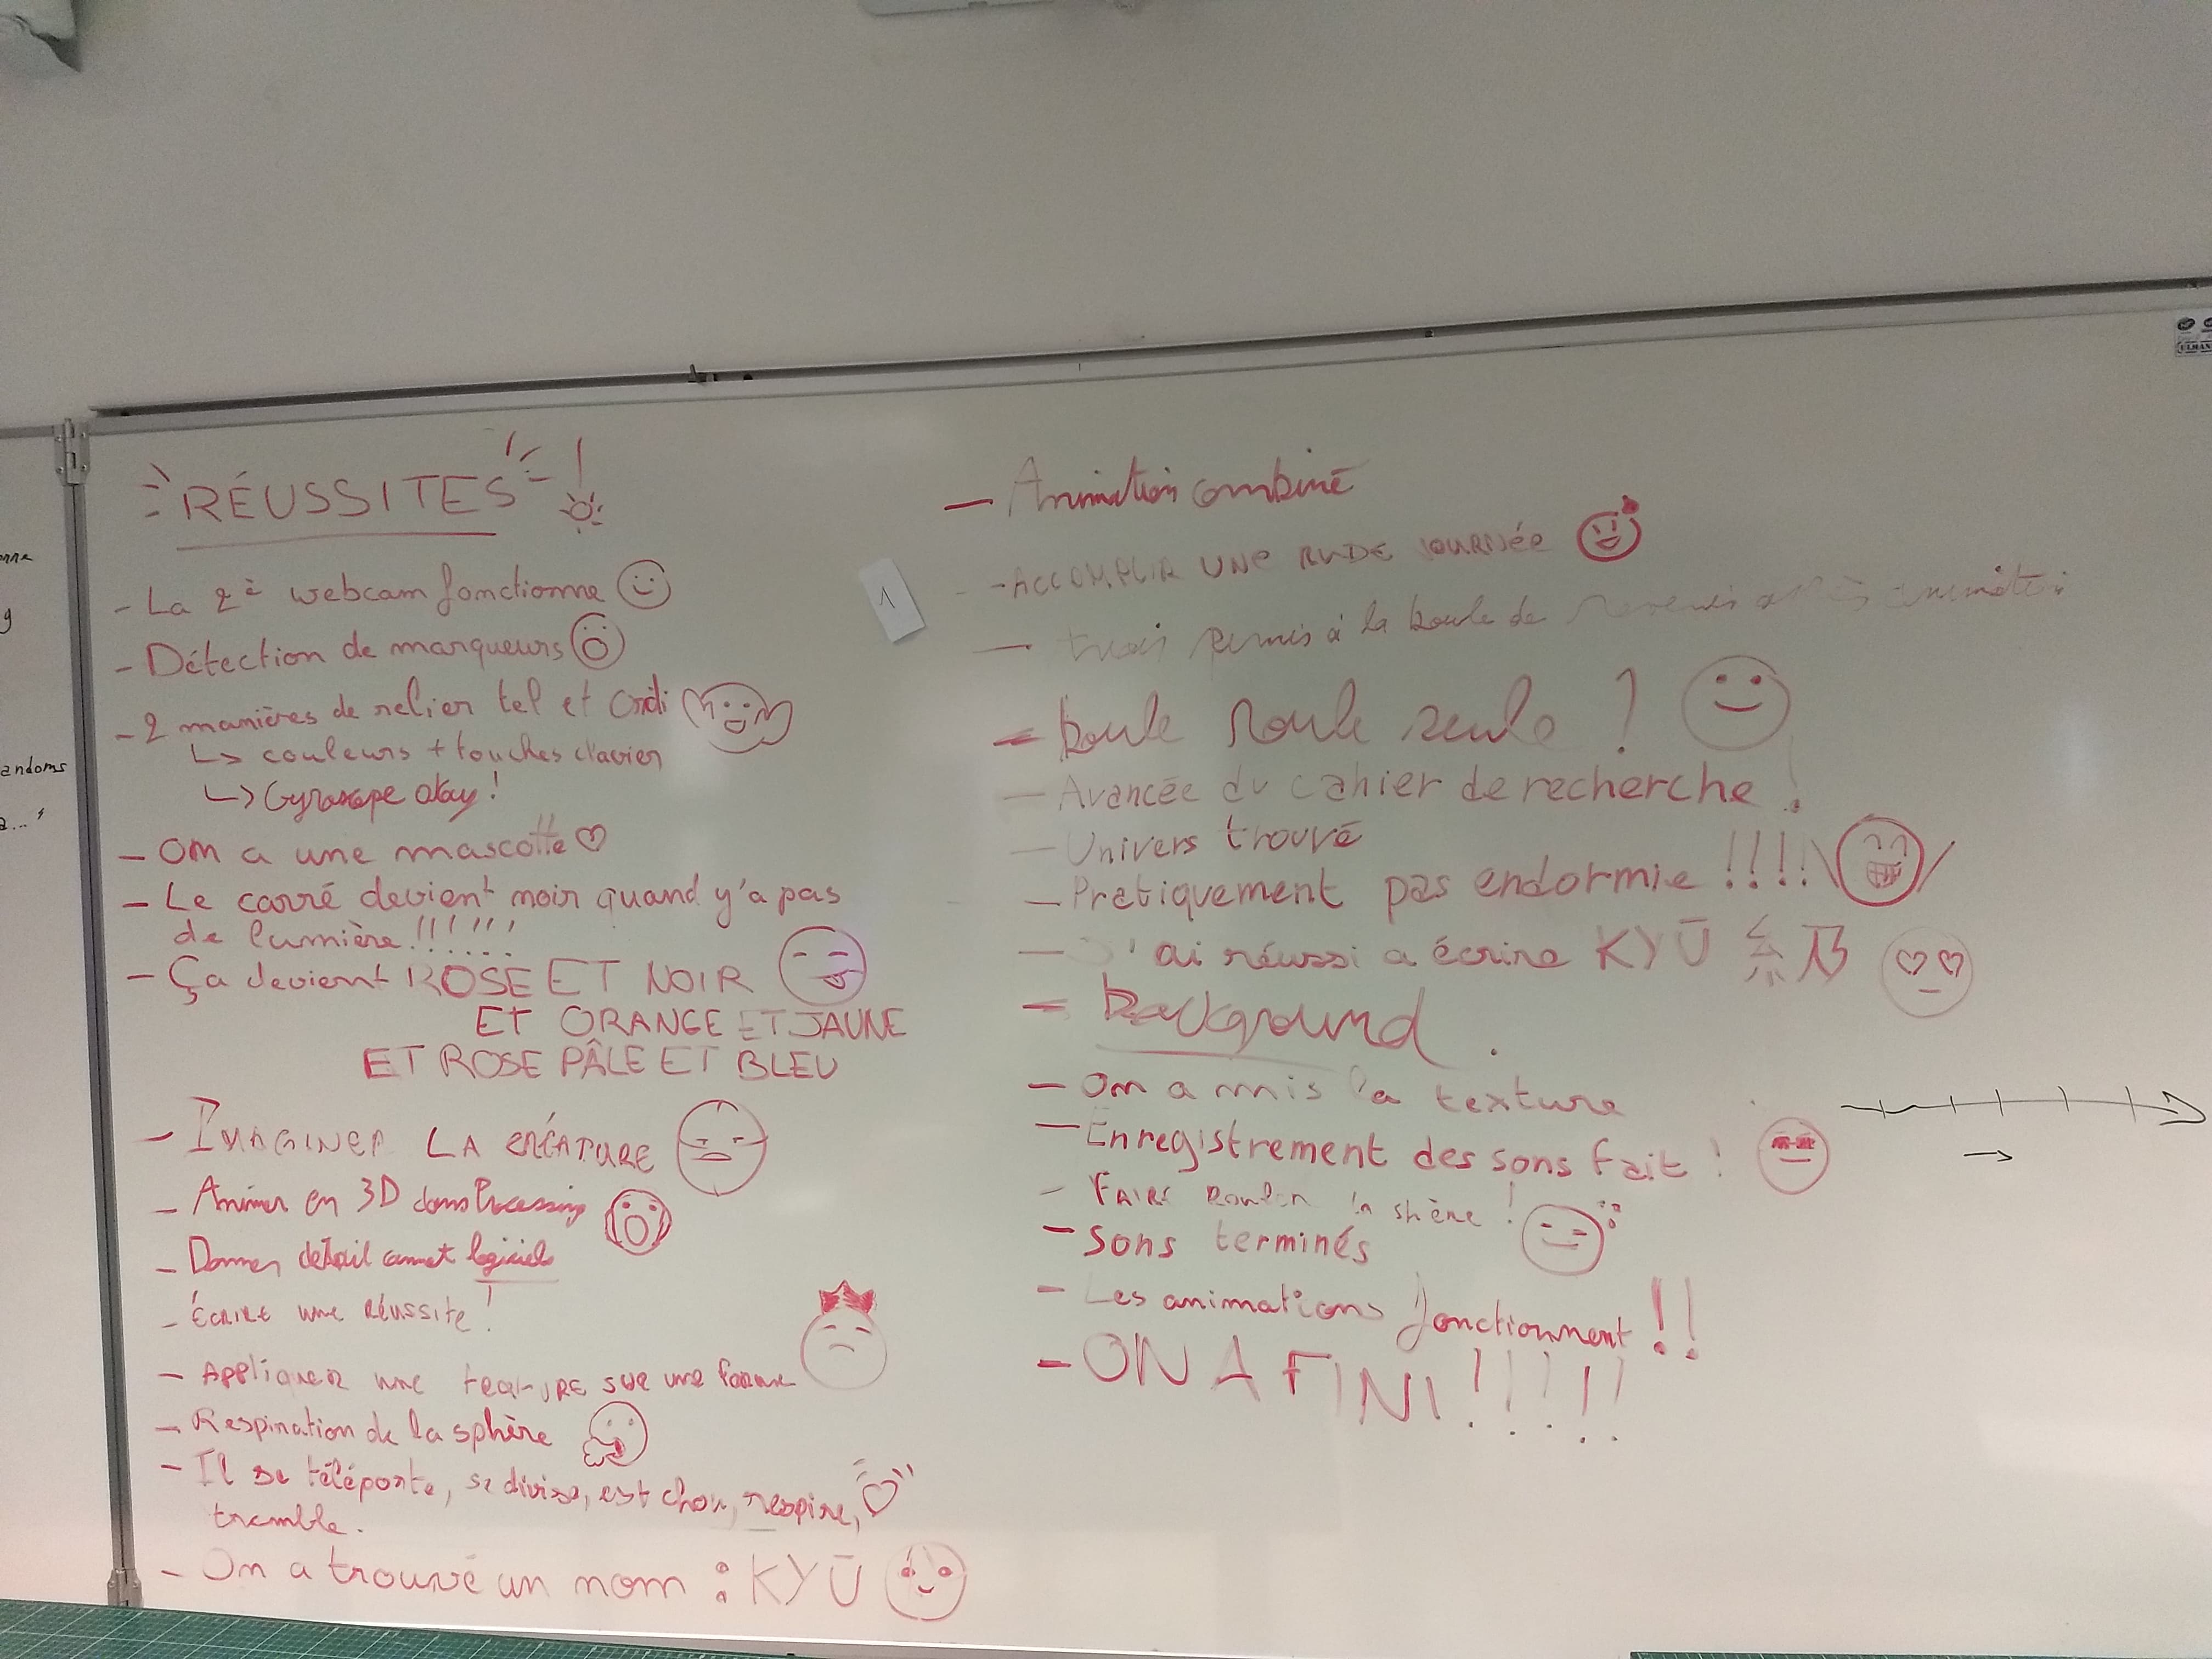 RÉUSSITES !
- La 2è webcam fonctionne
- Détection de marqueurs
- 2 manières de relier tel et Ordi
↳ couleurs + touches clavier
↳ Gyroscope okay !
- On a une mascotte ♡
- Le carré devient noir quand y'a pas
de lumière !!!!!!
- Ça devient ROSE ET NOIR
ET ORANGE ET JAUNE
ET ROSE PÂLE ET BLEU
- IMAGINER LA CRÉATURE
- Animer en 3D dans Processing
- Donner détail logiciels
- ÉCRIRE UNE RÉUSSITE !
- APPLIQUER UNE SUR UNE FORME
- Respiration de la sphère
- Il se téléporte, se divise, est chou, respire, ♡
tremble.
- On a trouvé un nom : KYŪ
1
- Animation combiné
- ACCOMPLIR UNE RUDE JOURNÉE
- permis à la boule de
- boule roule seule !
- Avancée du cahier de recherche !
- Univers trouvé
- Pratiquement pas endormie !!!!
- J'ai réussi a écrire KYŪ 糸乃
- background.
- On a mis la texture
- Enregistrement des sons fait !
- FAIRE rouler la !
- Sons terminés
- Les animations fonctionnent !!
- ON A FINI !!!!!
andoms